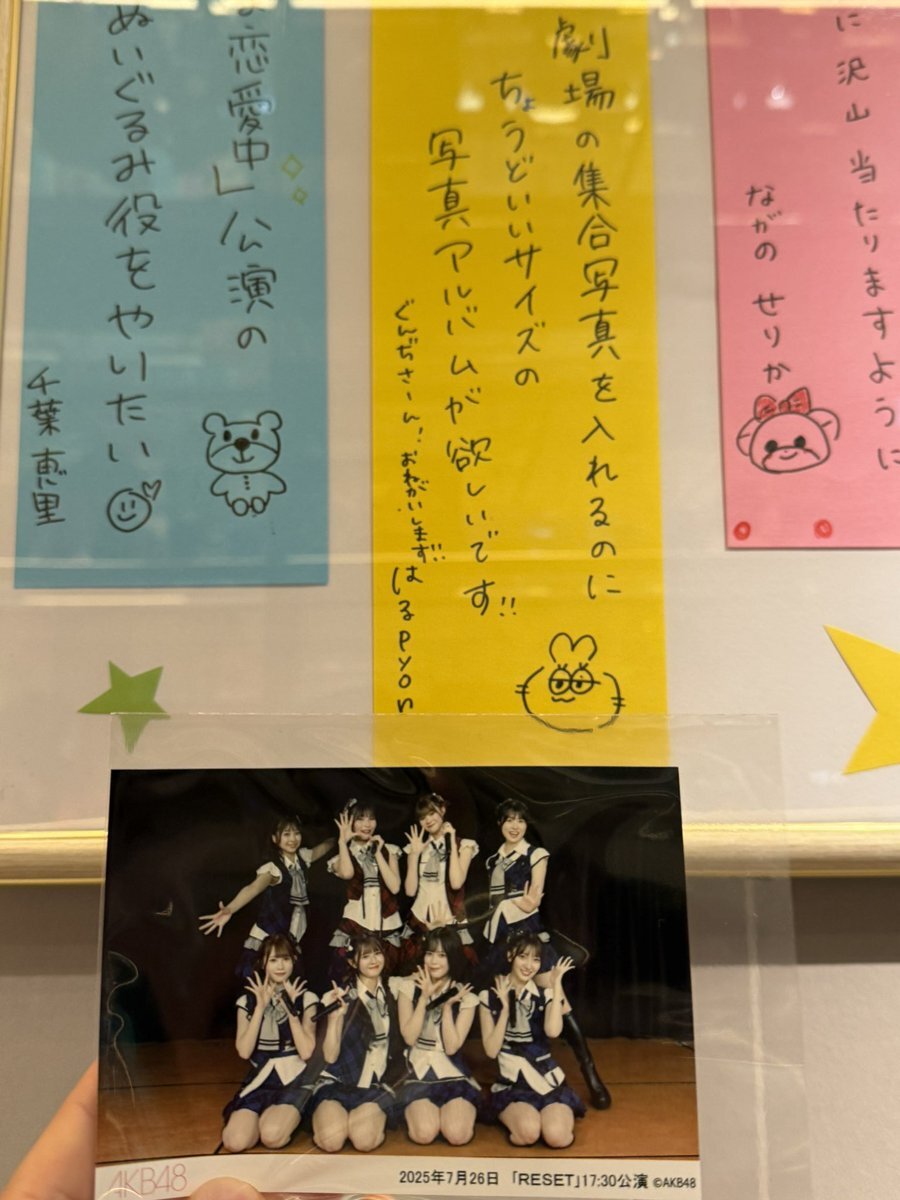 に沢山当たりますように
ながの せりか
劇場の集合写真を入れるのに
ちょうどいいサイズの
写真アルバムが欲しいです!!
ぐんぢさーん!おねがいします!! はるpyon
恋愛中」公演の
ぬいぐるみ役をやりたい
千葉恵里
AKB48
2025年7月26日 「RESET」17:30公演 ©AKB48